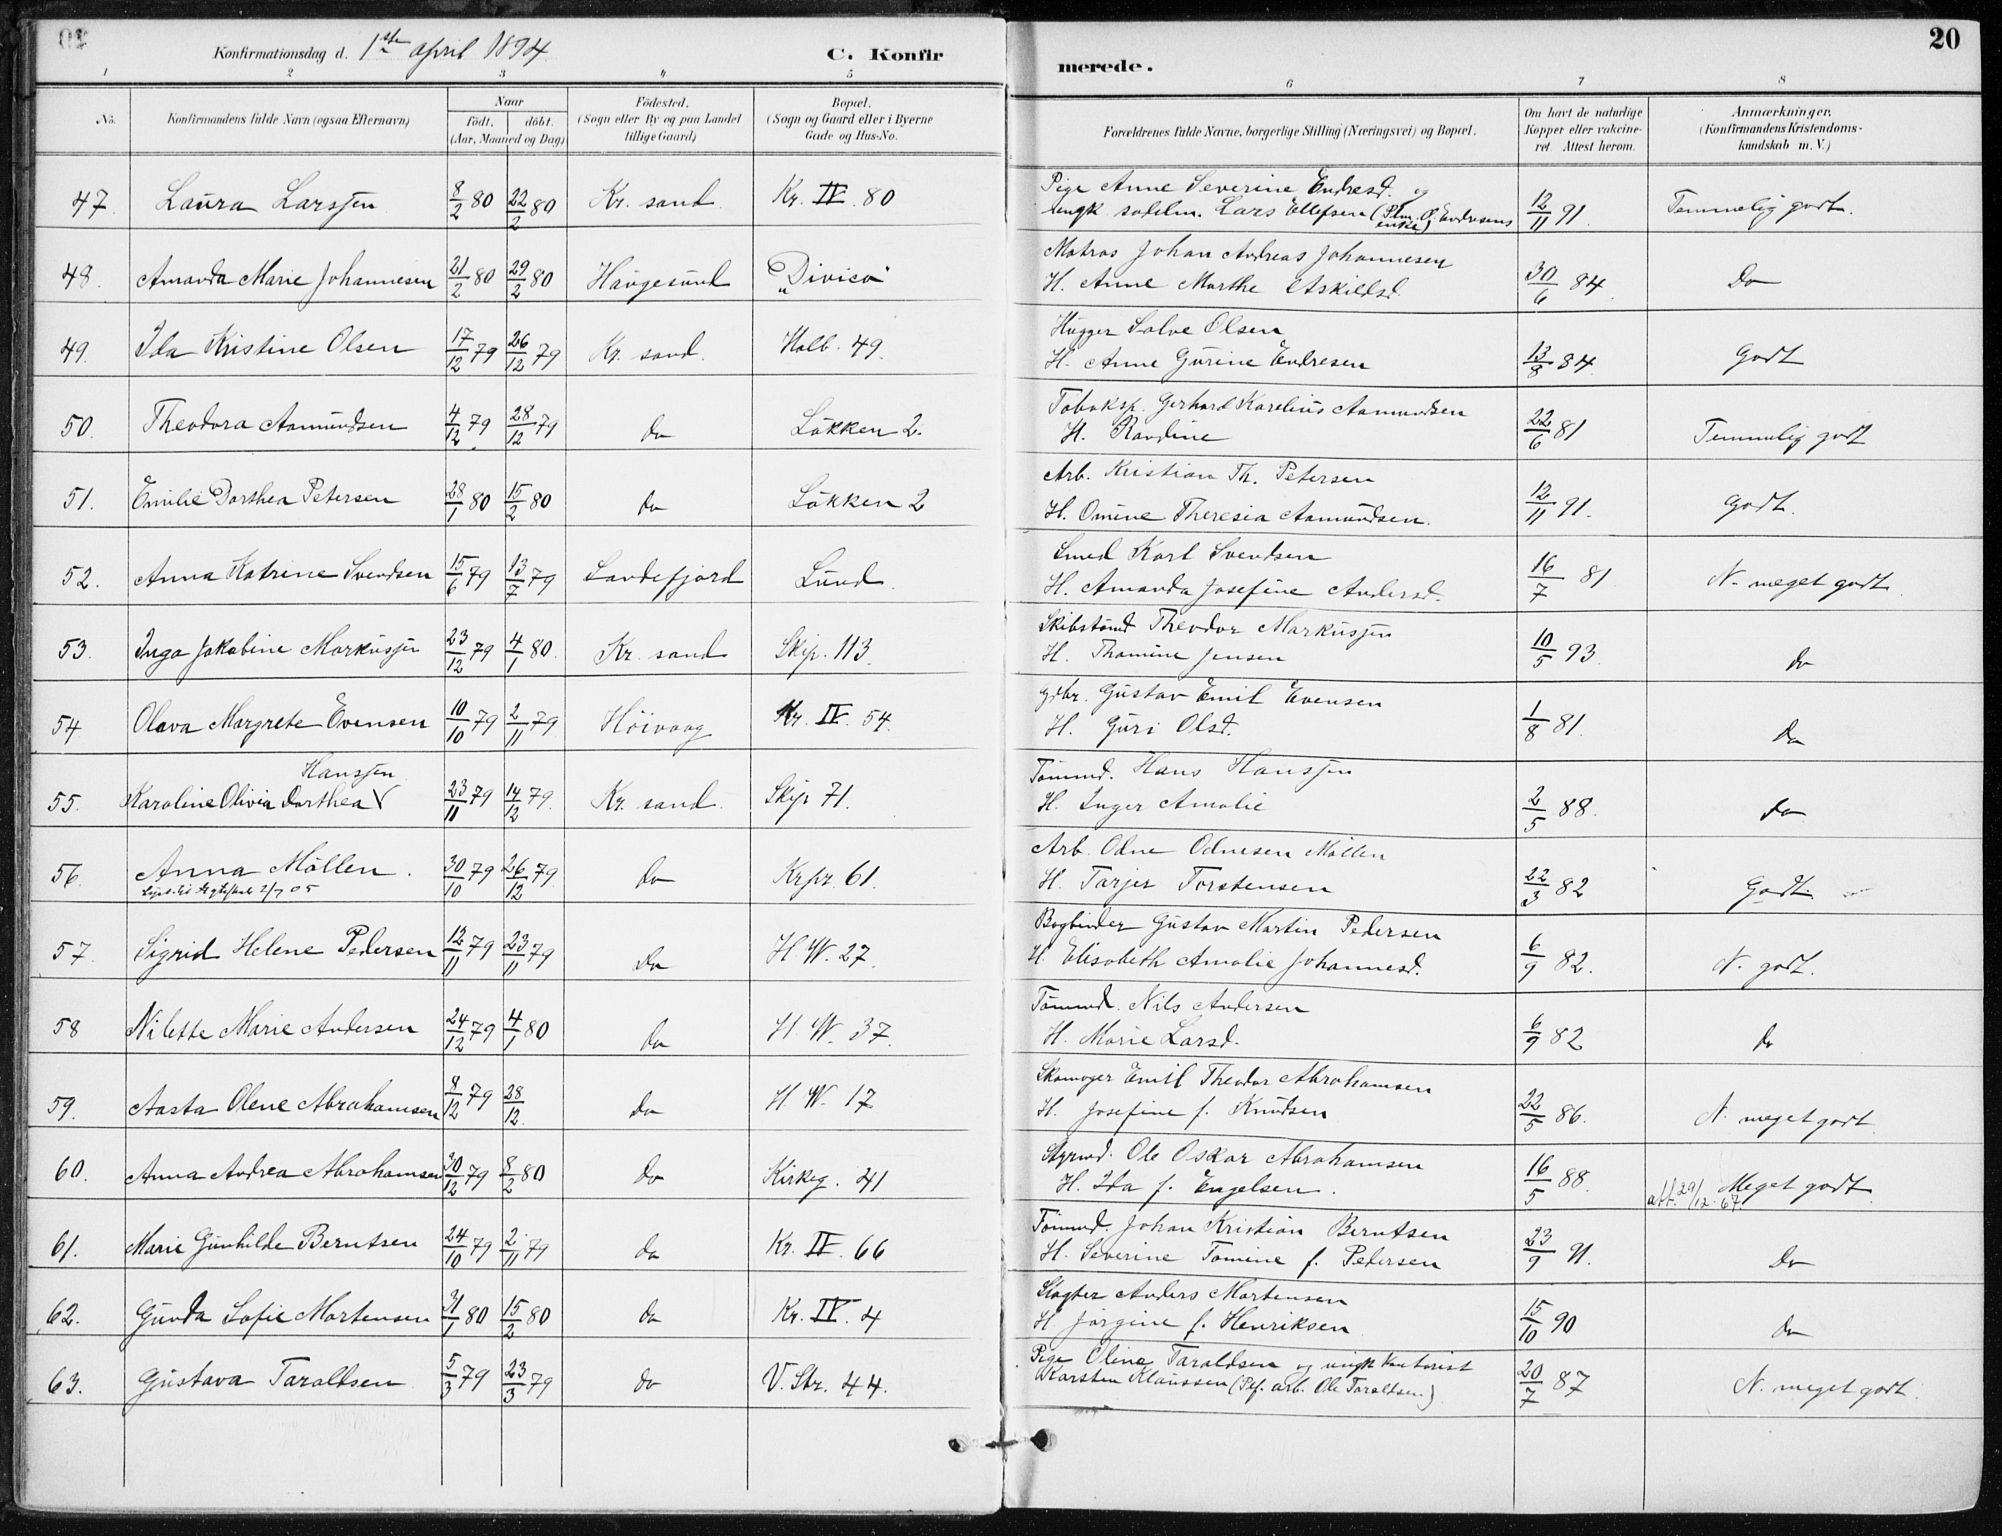 Konfirmationsdag d. 1ste april 1894 C. Konfirmerede. 20
1 2 3 4 5 6 7 8
No. Konfirmandens fulde Navn (ogsaa Efternavn) Naar födt. döbt. (Aar, Maaned og Dag) Födested. (Sogn eller By og paa Landet tillige Gaard) Bopæl. (Sogn og Gaard eller i Byerne Gade og Hus-No. Forældrenes fulde Navne, borgerlige Stilling (Næringsvei) og Bopæl. Om havt de naturlige Kopper eller vakcineret. Attest herom. Anmærkninger. (Konfirmandens Kristendomskundskab m. V.)
47. Laura Larssen 8/2 80 22/2 80 Kr. sand. Kr. IV. 80 Pige Anne Severine Endresd. og
ungk. Lars Ellefsen (Plm. O. Endresens enke) 12/11 91. Temmelig godt.
48. Amanda Marie Johannesen 21/2 80 29/2 80 Haugesund "Divico" Matros Johan Andreas Johannesen
H. Anne Marthe Askildsd. 30/6 84. Do
49. Ida Kristine Olsen 17/12 79 26/12 79 Kr. sand. Holb. 49. Hugger Salve Olsen
H. Anne Gurine Endresen 13/8 84. Godt
50. Theodora Aamundsen 4/12 79 28/12 79 do Lökken 2. Tobaksp. Gerhard Karelius Aamundsen
H. Randine 22/6 81 Temmelig godt
51. Emilie Dorthea Petersen 28/1 80 15/2 80 do Lökken 2 Arb. Kristian Th. Petersen
H. Omine Theresia Aamundsen. 12/11 91. Godt.
52. Anna Katrine Svendsen 15/6 79 13/7 79 Sandefjord Lund. Smed Karl Svendsen
H. Amanda Josefine Andersd. 16/7 81 N. meget godt.
53. Inga Jakobine Markussen 23/12 79 4/1 80. Kr. sand Skip. 113. Skibstömd Theodor Markussen
H. Thomine Jensen 10/5 93. do
54 Olava Margrete Evensen 10/10 79 2/11 79 Höivaag Kr. IV. 54. Gdbr. Gustav Emil Evensen
H. Guri Olsd. 1/8 81. Do
55. Karoline Olivia Dorthea V Hanssen 23/11 79 14/12 79. Kr. sand. Skip 71. Tömmd. Hans Hanssen
H. Inger Amalie 2/5 88. do
56. Anna Möllen. 30/10 79 26/12 79. do Krpr. 61. Arb. Odne Odnesen Möllen
2/7 05 H. Tarjer Torstensen 22/3 82 Godt.
57. Sigrid Helene Pedersen 12/11 79 23/11 79 Do H. W. 27. Bogbinder Gustav Martin Pedersen
H. Elisabeth Amalie Johannesd. 6/9 82. N. godt.
58 Nilette Marie Andersen 24/12 79 4/1 80 do H. W. 37. Tömmd. Nils Andersen
H. Marie Larsd. 6/9 82 do
59. Aasta Olene Abrahamsen 8/12 79 28/12. do H. W. 17 Skomager Emil Theodor Abrahamsen
H. Josefine f. Knudsen 22/5 86. N. meget godt.
60. Anna Andrea Abrahamsen 30/12 79 8/2 80 do Kirkeg. 41 Styrmd. Ole Oskar Abrahamsen
H. Ida f. Engelsen. 16/5 88. att. 29/12-67 Meget godt.
61. Marie Gunhilde Berntsen 24/10 79 2/11 79 do Kr. IV. 66 Tömmd. Johan Kristian Berntsen
H. Severine Tomine f. Pedersen 23/9 91. Do
62. Gunda Sofie Mortensen 31/1 80 15/2 80 do Kr. IV. 4 Slagter Anders Mortensen
H. Jörgine f. Henriksen 15/10 90 do
63. Gustava Taraldsen 5/3 79 23/3 79 do V. Str. 44. Pige Oline Taraldsen og ungk. kontorist
Karsten Klaussen (Plf. arb. Ole Taraldsen) 20/7 87 N. meget godt.